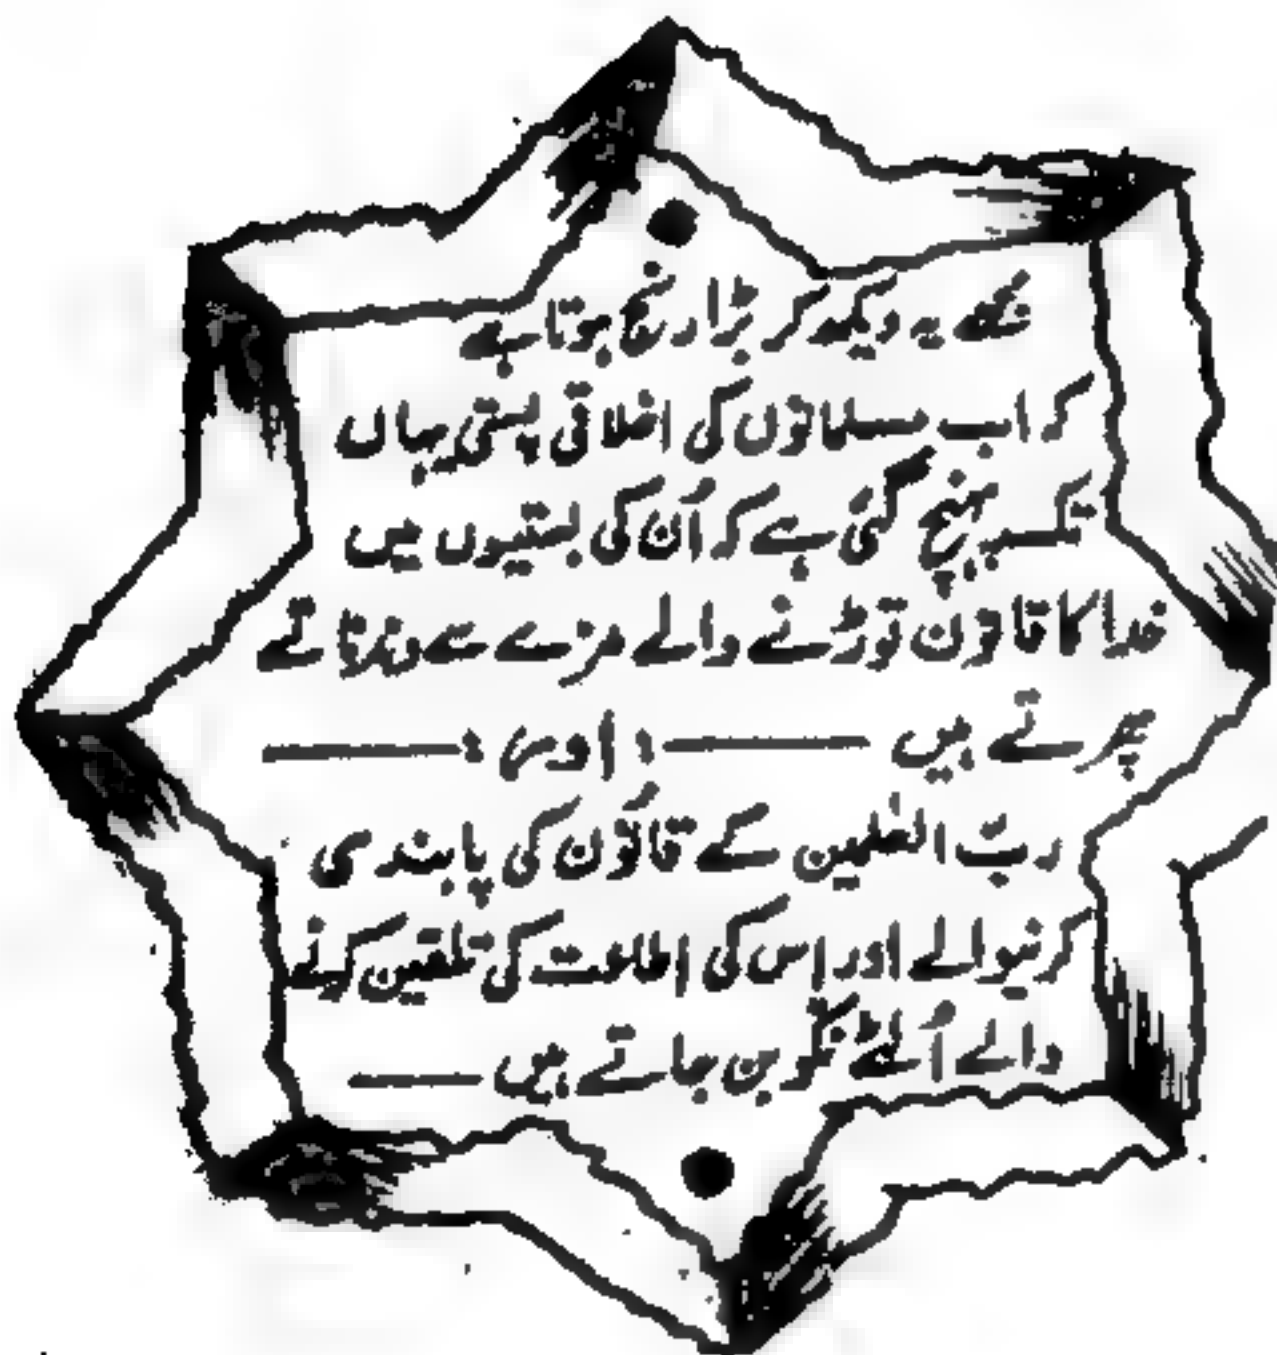 مجھے یہ دیکھ کر بڑا رنج ہوتا ہے
کہ اب مسلمانوں کی اخلاقی پستی یہاں
تک پہنچ گئی ہے کہ اُن کی بستیوں میں
خدا کا قانون توڑنے والے مزے سے دندناتے
پھرتے ہیں ——— ؛ اور ؛ ———
ربّ العٰلمین کے قانون کی پابندی
کرنیوالے اور اس کی اطاعت کی تلقین کرنے
والے اُلٹے نکّو بن جاتے ہیں ———